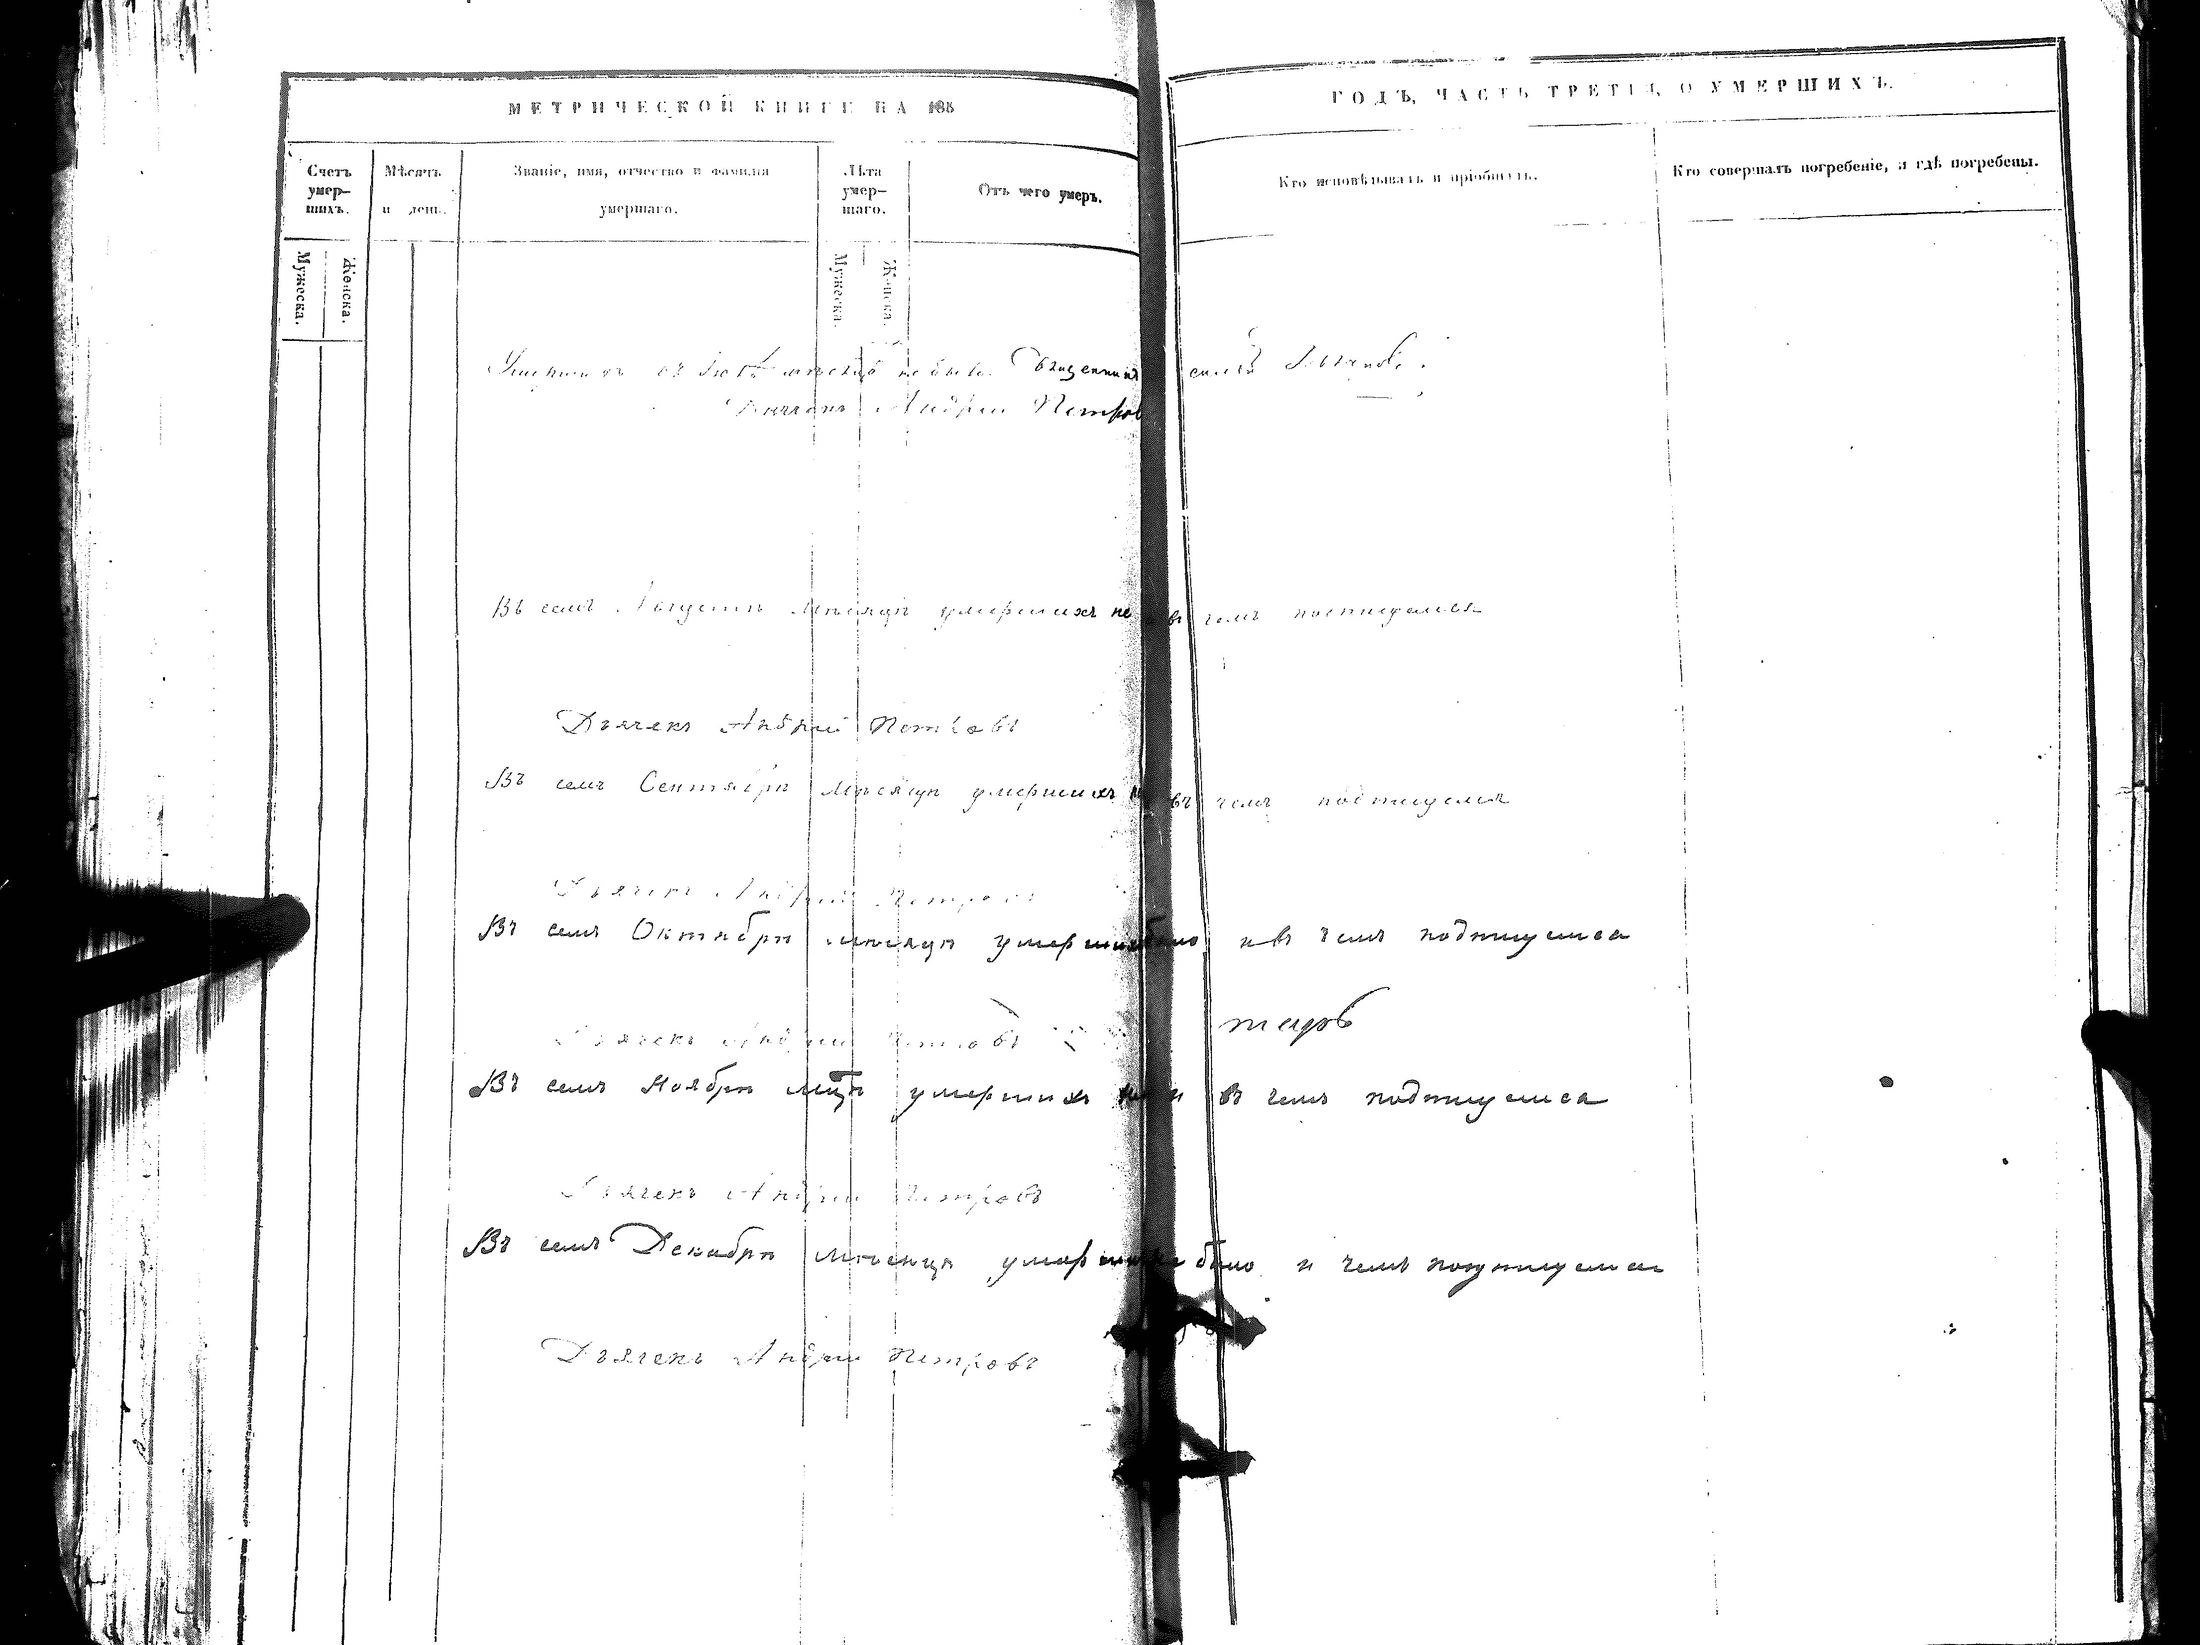 МЕТРИЧЕСКОЙ КНИГЕ НА 185
ГОДЪ, ЧАСТЬ ТРЕТІЯ, О УМЕРШИХЪ.
Счетъ умер-шихъ.
Мужеска.
Женска.
Мѣсяцъ и день.
Званіе, имя, отчество и фамилія умершаго.
Лѣта умер-шаго.
Мужеска.
Женска.
Отъ чего умеръ.
Кто исповѣдывалъ и пріобщалъ.
Кто совершалъ погребеніе, и гдѣ погребены.
Умершихъ въ мѣсяцѣ не было Священникъ
Дьячекъ Андрей Петровъ
Въ семъ Августѣ мѣсяцѣ умершихъ не въ чемъ подпишуемся
Дьячекъ Андрей Петровъ
Въ семъ Сентябрѣ мѣсяцѣ умершихъ въ чемъ подпишуемся
Дьячекъ Андрей Петровъ
Въ семъ Октябрѣ мѣсяцѣ умерших было и въ чемъ подпишуемса
Дьячекъ Андрей Петровъ
Въ семъ Ноябрѣ мцѣ умершихъ и въ чемъ подпишуемса
Дьячекъ Андрей Петровъ
Въ семъ Декабрѣ мѣсяцѣ было и чемъ подпишуемса
Дьячекъ Андрей Петровъ